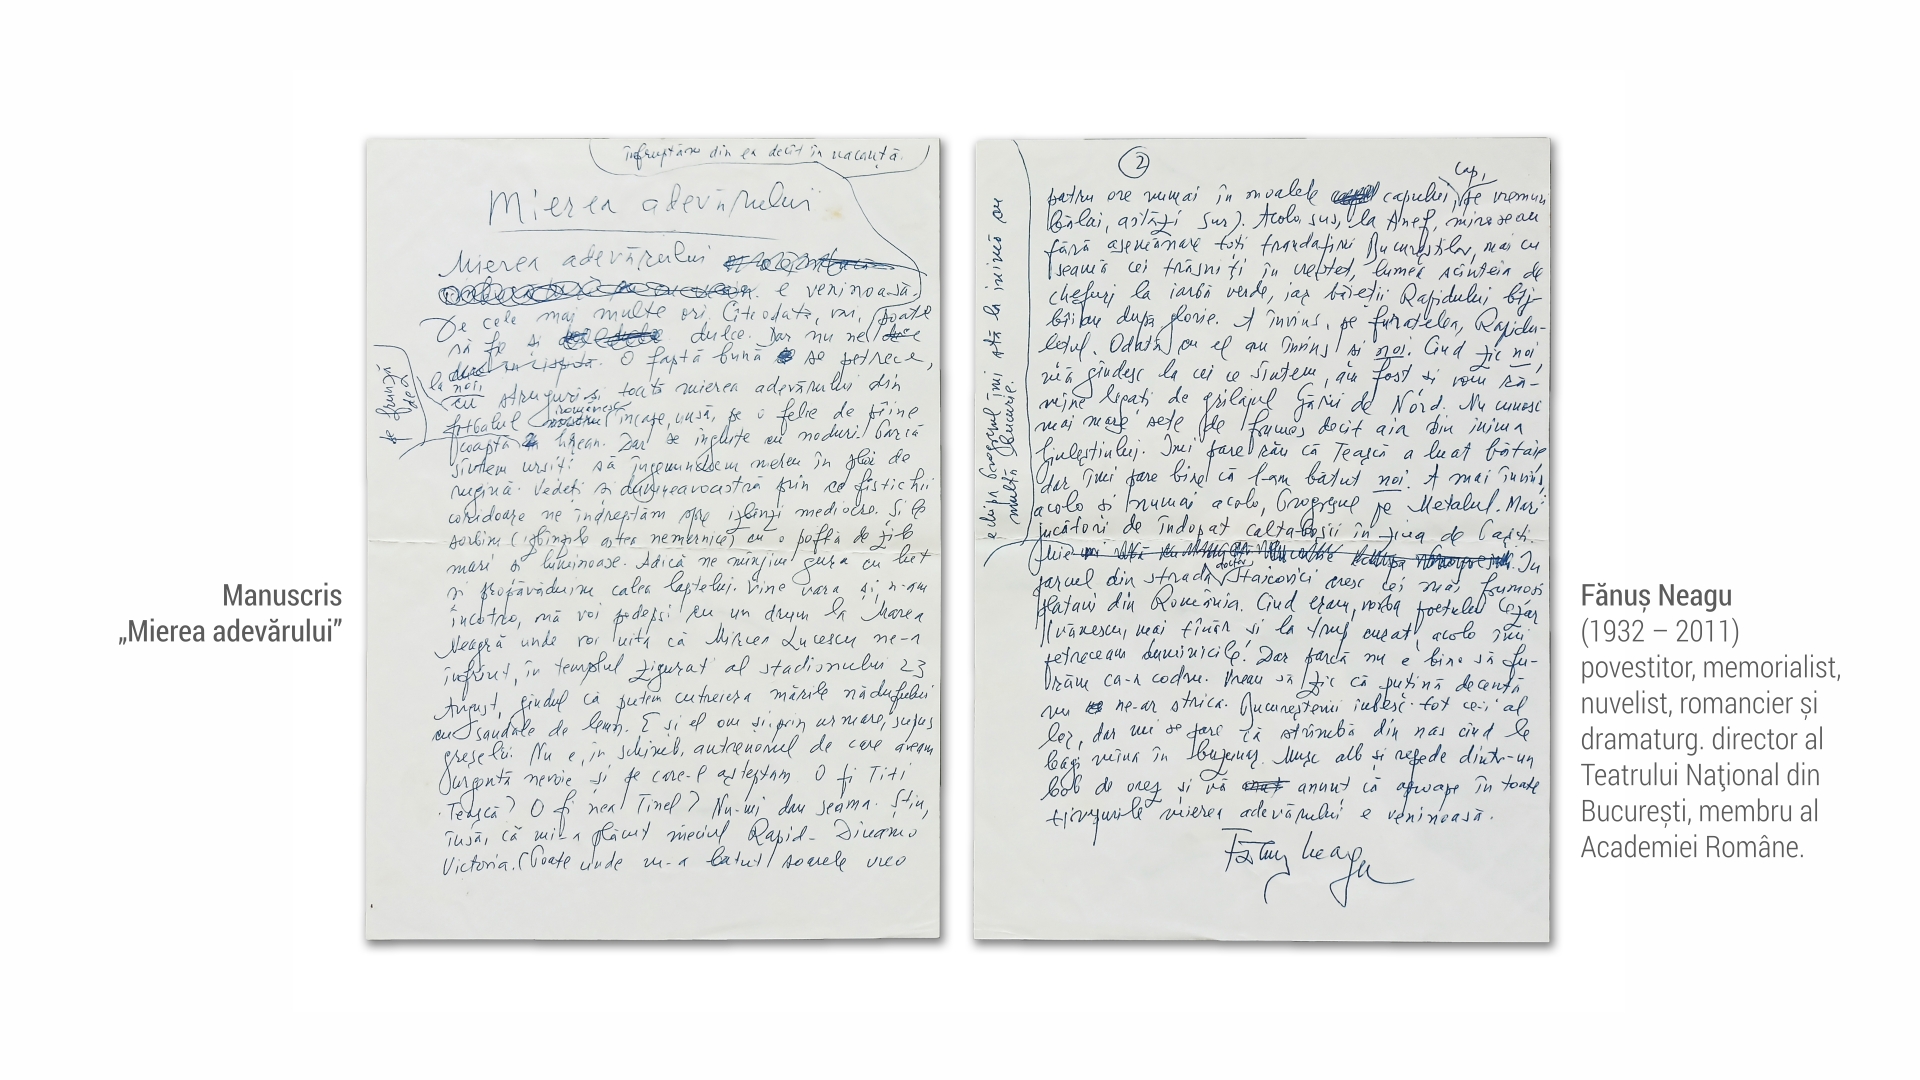 Manuscris
„Mierea adevărului”
înfruptăm din ea decît în vacanță.
Mierea adevărului
Mierea adevărului
e veninoasă.
De cele mai multe ori. Cîteodată, poate
să fie și dulce. Dar nu ne
O faptă bună se petrece,
la noi,
pe frunză
de
cu struguri și toată mierea adevărului din
fotbalul românesc încape, însă, pe o felie de pîine
coaptă Dar se înghite cu noduri. Parcă
sîntem ursiți să îngenunchem mereu în ploi de
rugină. Vedeți și dumneavoastră prin ce fistichii
coridoare ne îndreptăm spre izbînzi mediocre. Și le
sorbim (izbînzile astea nemernice) cu o poftă de zile
mari și luminoase. Adică ne mînjim gura cu
și propovăduim calea laptelui. Vine vara și, n-am
încotro, mă voi pedepsi cu un drum la Marea
Neagră unde voi uita că Mircea Lucescu ne-a
înfrînt, în templul zigurat al stadionului 23
August, gîndul că putem cutreiera mările nădufului
cu sandale de lemn. E și el om și, prin urmare, supus
greșelii. Nu e, în schimb, antrenorul de care aveam
urgentă nevoie și pe care-l așteptam. O fi Titi
Teașcă? O fi nea Tinel? Nu-mi dau seama. Știu,
însă, că mi-a plăcut meciul Rapid – Dinamo
Victoria. (Poate unde m-a bătut soarele vreo
2
patru ore numai în moalele capului, cap,
bălai, astăzi sur). Acolo, sus, la Anef, miroseau
fără asemănare toți trandafirii Bucureștilor, mai cu
seamă cei trăsniți în creștet, lumea scînteia de
chefuri la iarbă verde, iar băieții Rapidului bîj-
bîiau după glorie. A învins, pe furatelea, Rapidu-
lețul. Odată cu el am învins și noi. Cînd zic noi,
mă gîndesc la cei ce sîntem, am fost și vom ră-
mîne legați de grilajul Gării de Nord. Nu cunosc
mai mare sete de frumos decît aia din inima
Giuleștiului. Îmi pare rău că Teașcă a luat bătaie
dar îmi pare bine că l-am bătut noi. A mai învins,
acolo și numai acolo, Progresul pe Metalul. Mari
jucători de îndopat caltaboșii în ziua de Paști.
echipa Progresul îmi stă la inimă cu
multă bucurie.
În
parcul din strada doctor Staicovici cresc cei mai frumoși
platani din România. Cînd eram, vorba poetului Cezar
Ivănescu, mai tînăr și la trup curat, acolo îmi
petreceam duminicile. Dar parcă nu e bine să fu-
răm ca-n codru. Vreau să zic că puțină decență
nu ne-ar strica. Bucureștenii iubesc tot ce-i al
lor, dar mi se pare că strîmbă din nas cînd le
bagi mîna în buzunar. Musc alb și repede dintr-un
bob de orez și vă anunț că aproape în toate
tîrgurile mierea adevărului e veninoasă.
Fănuș Neagu
Fănuș Neagu
(1932 – 2011)
povestitor, memorialist,
nuvelist, romancier și
dramaturg. director al
Teatrului Naţional din
București, membru al
Academiei Române.